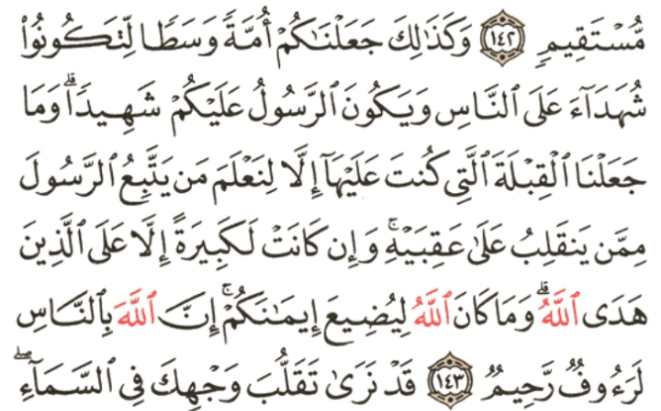 مُّسْتَقِيمٍ ١٤٢ وَكَذَٰلِكَ جَعَلْنَٰكُمْ أُمَّةً وَسَطًا لِّتَكُونُوا۟
شُهَدَآءَ عَلَى ٱلنَّاسِ وَيَكُونَ ٱلرَّسُولُ عَلَيْكُمْ شَهِيدًاۗ وَمَا
جَعَلْنَا ٱلْقِبْلَةَ ٱلَّتِى كُنتَ عَلَيْهَآ إِلَّا لِنَعْلَمَ مَن يَتَّبِعُ ٱلرَّسُولَ
مِمَّن يَنقَلِبُ عَلَىٰ عَقِبَيْهِۚ وَإِن كَانَتْ لَكَبِيرَةً إِلَّا عَلَى ٱلَّذِينَ
هَدَى ٱللَّهُۗ وَمَا كَانَ ٱللَّهُ لِيُضِيعَ إِيمَٰنَكُمْۚ إِنَّ ٱللَّهَ بِٱلنَّاسِ
لَرَءُوفٌ رَّحِيمٌ ١٤٣ قَدْ نَرَىٰ تَقَلُّبَ وَجْهِكَ فِى ٱلسَّمَآءِۖ